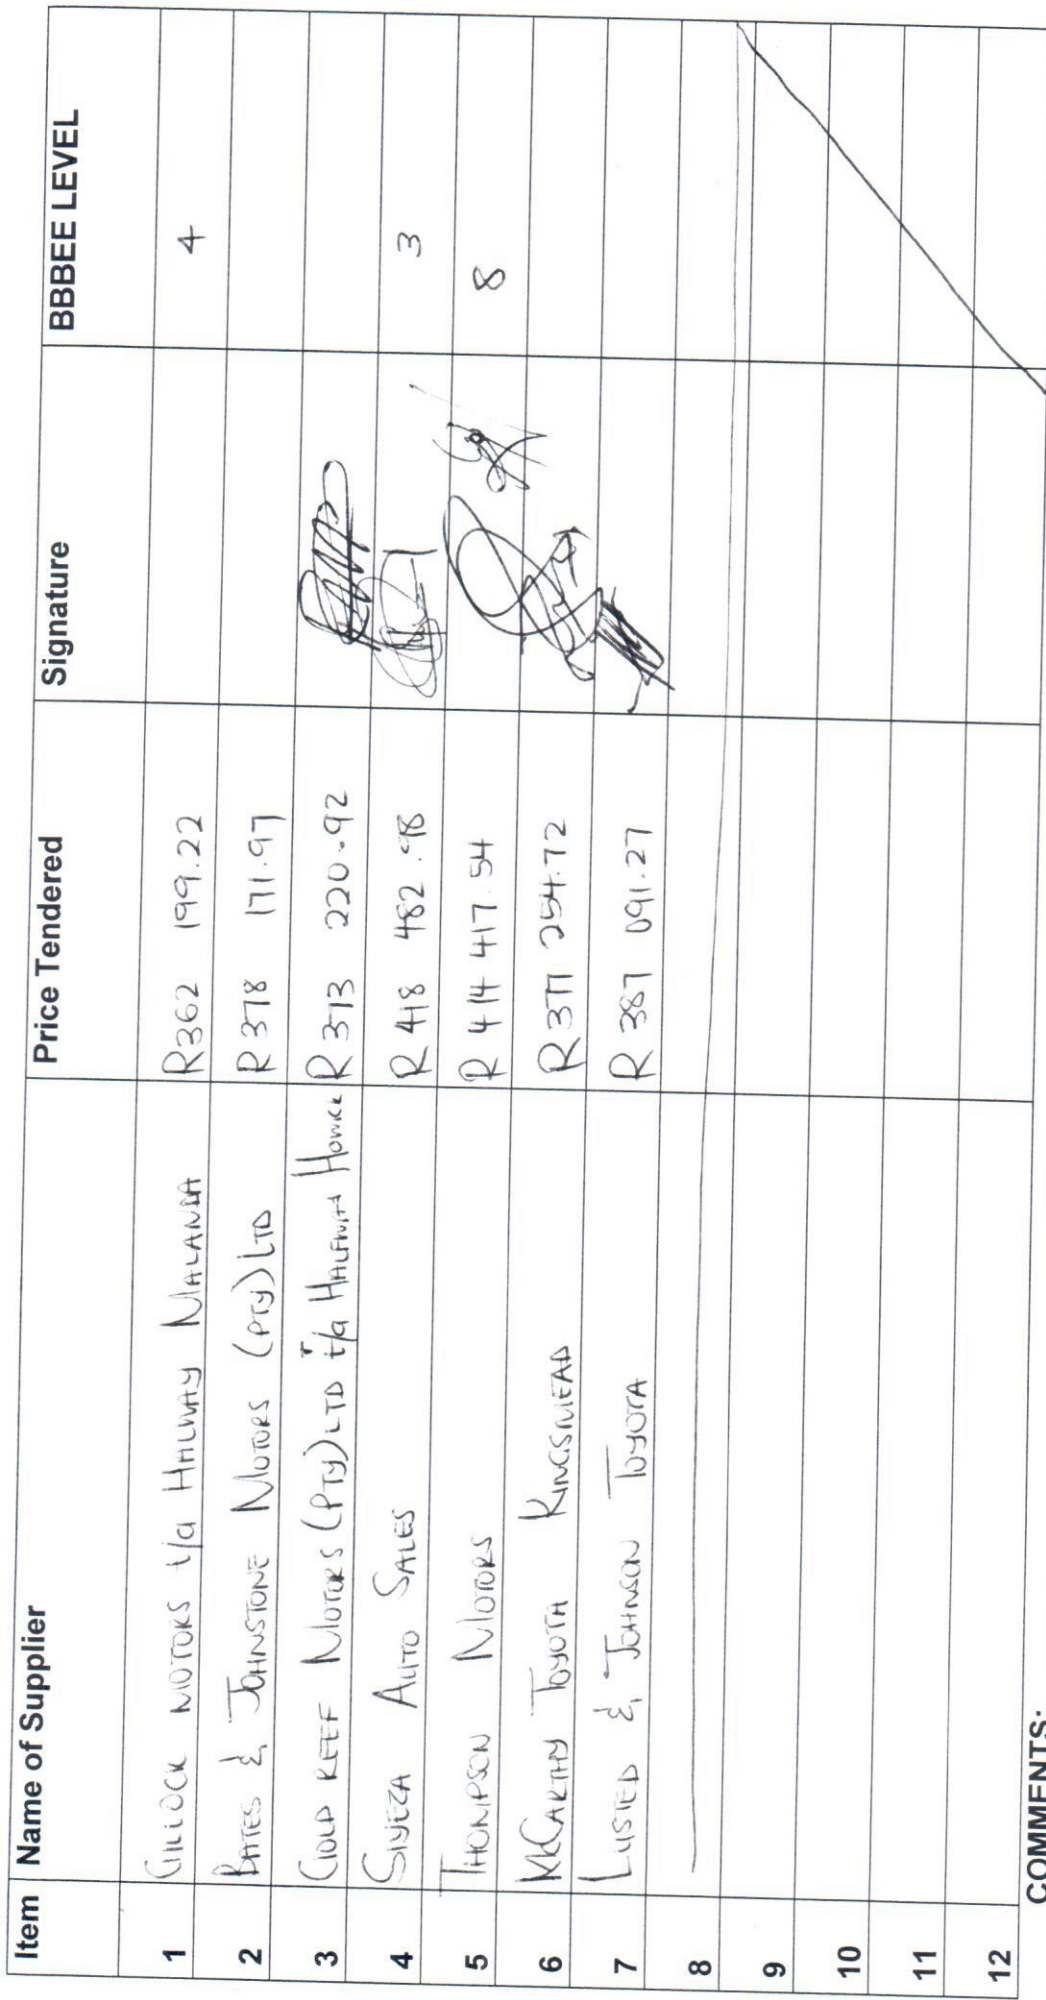 Item Name of Supplier Price Tendered Signature BBBEE LEVEL
1 GILLOCK MOTORS t/a HALFWAY MALANDA R362 199.22 4
2 BATES & JOHNSTONE MOTORS (PTY) LTD R378 171.97
3 GOLD REEF MOTORS (PTY) LTD t/a HALFWAY HOWICK R373 220.92
4 SIYEZA AUTO SALES R418 482.98 3
5 THOMPSON MOTORS R414 417.54 8
6 McCARTHY TOYOTA KINGSMEAD R377 254.72
7 LUSTED & JOHNSON TOYOTA R387 091.27
8
9
10
11
12
COMMENTS: